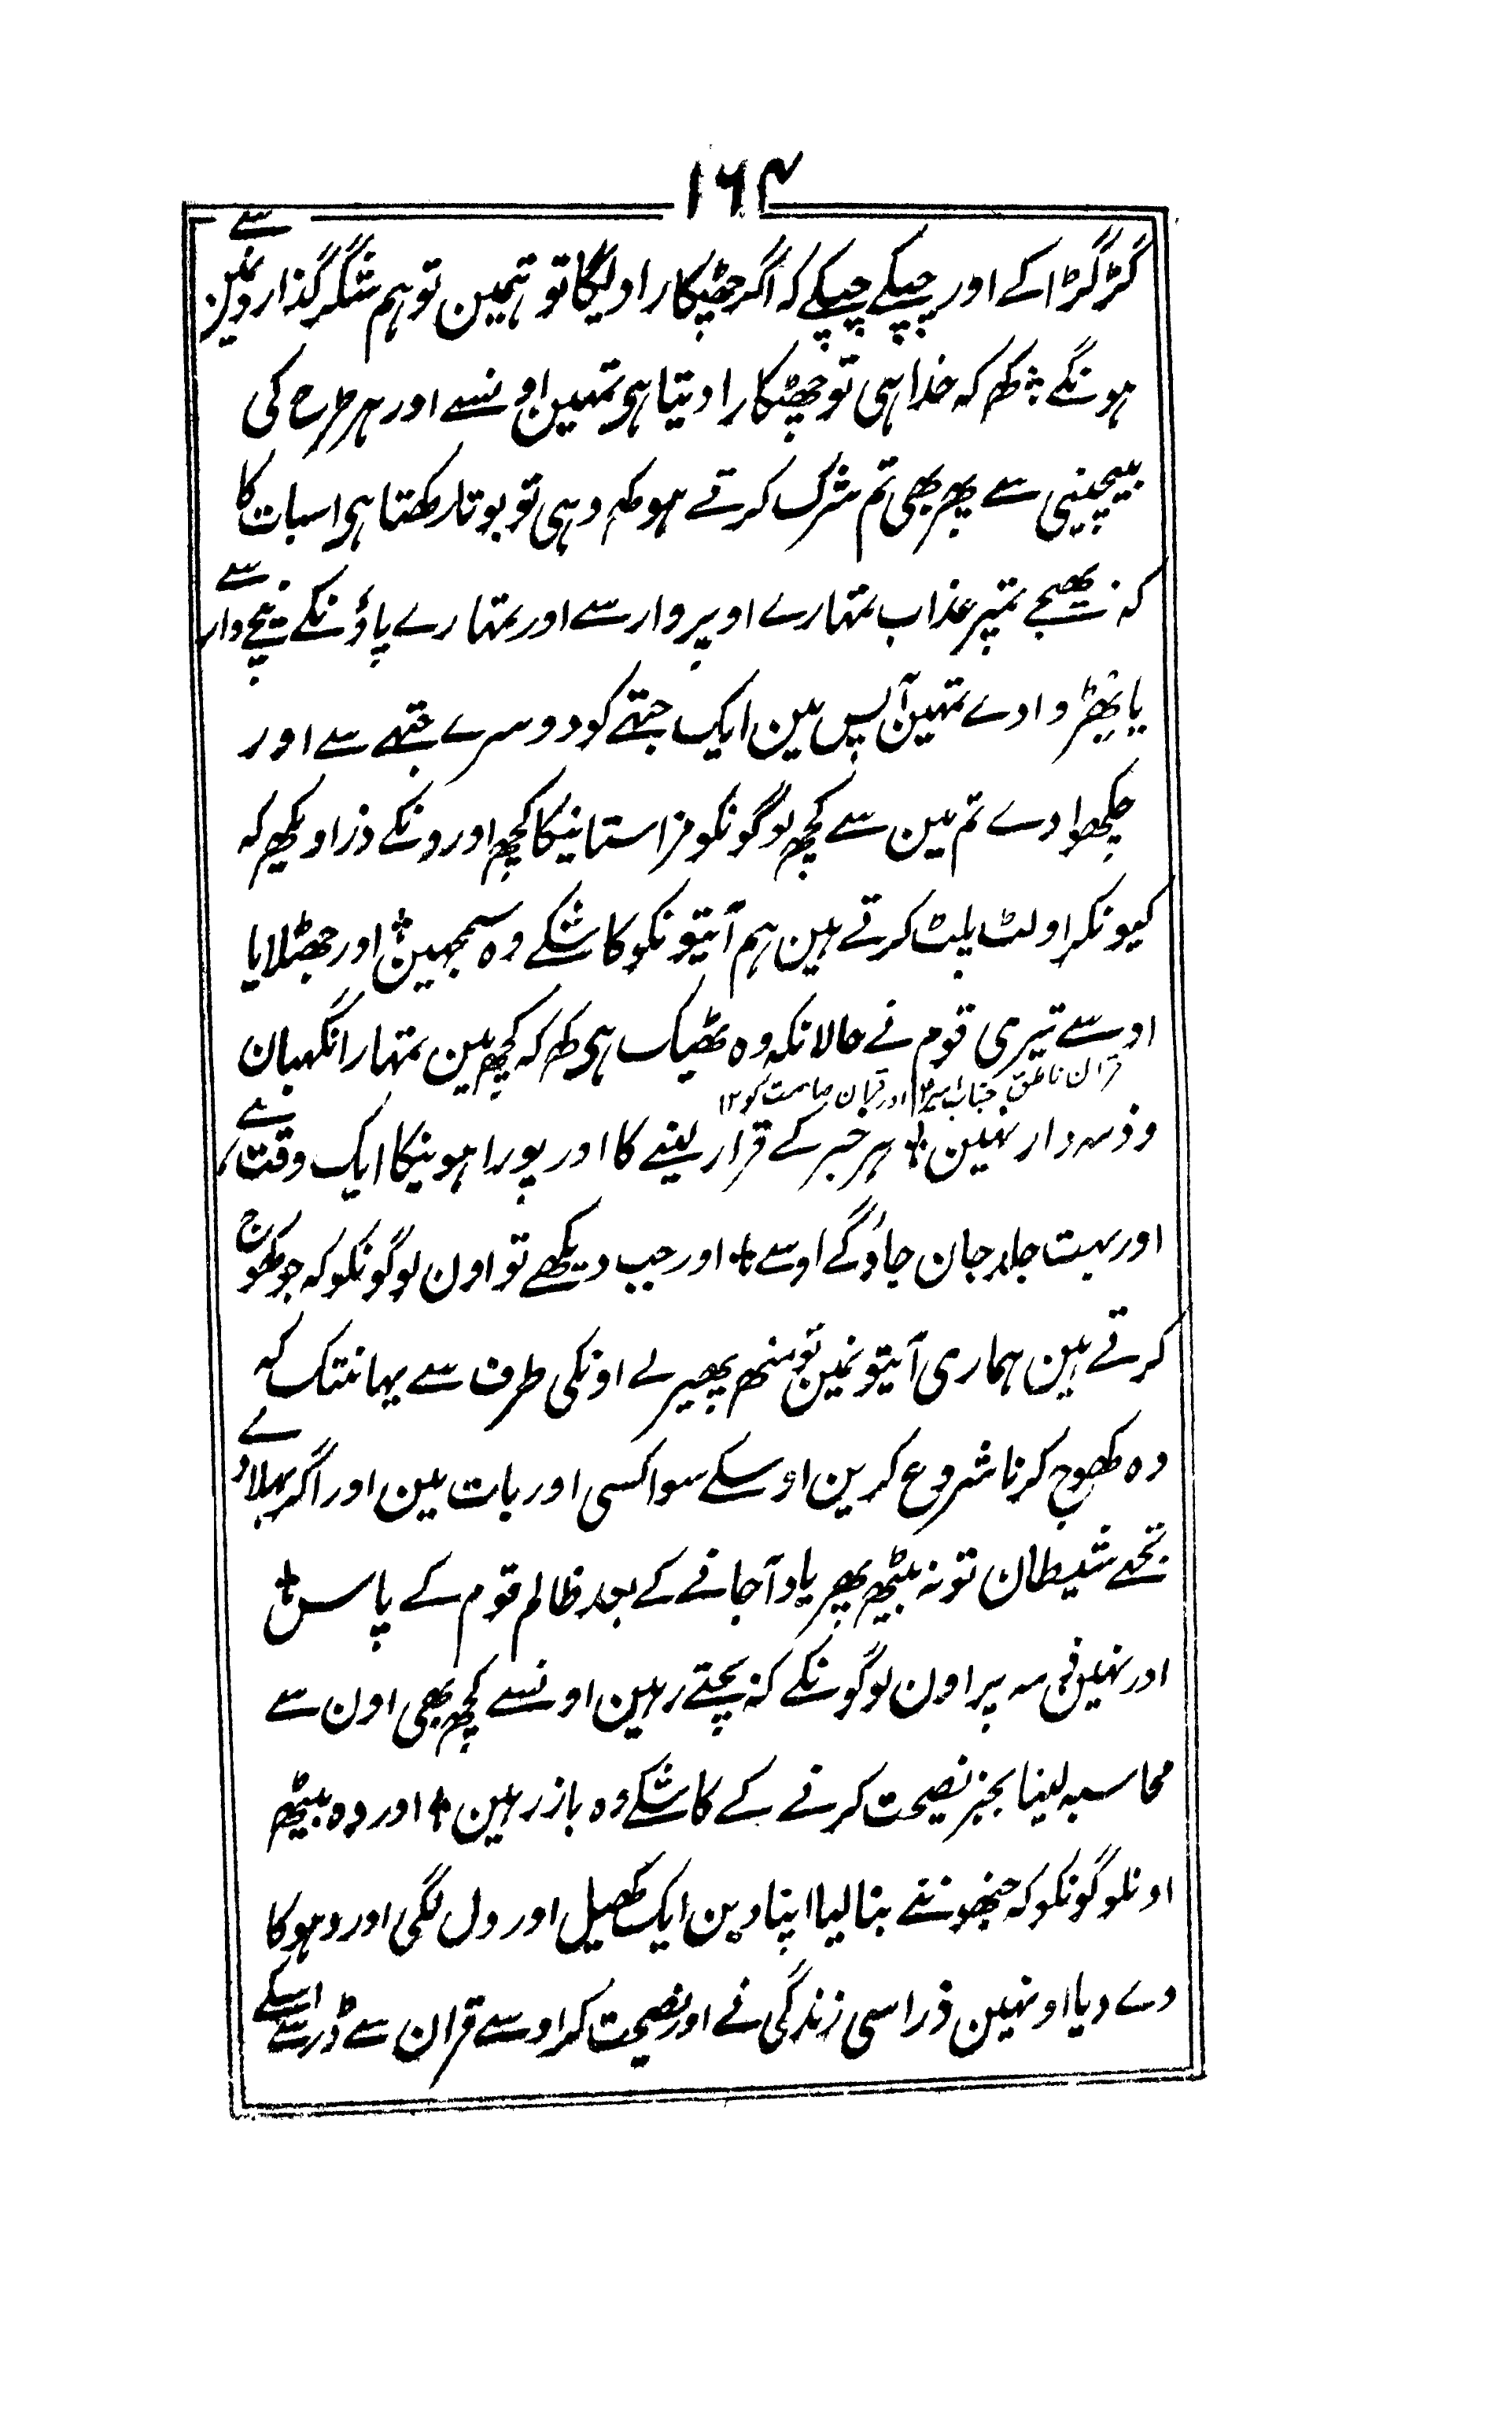 ۱۶۴
گڑگڑا کے اور چپکے چپکے کہ اگر چھٹکارا دلیگا تو ہمین تو ہم شکر گذارونمین سے
ہونگے ۞ کھ کہ خدا ہی تو چھٹکارا دیتا ہی تمہین اونسے اور ہر طرح کی
بیچینی سے پھر بھی تم شرک کرتے ہو ۞ کھ وہی تو بوتا رکھتا ہی اسبات کا
کہ بھیجے تمپر عذاب تمہارے اوپر وار سے اور تمہارے پاؤنکے نیچے وار سے
یا بھڑوادے تمہین آپس مین ایک جتھے کو دوسرے جتھے سے اور
چکھوادے تم مین سے کچھ لوگونکو مزا ستانیکا کچھ اورونکے ذرا دیکھ کہ
کیونکر اولٹ پلٹ کرتے ہین ہم آیتونکو کاشکے وہ سمجہین ۞ اور جھٹلایا
اوسے تیری قوم نے حالانکہ وہ ٹھیک ہی کھ کہ کچھ مین تمہارا نگہبان
قران ناطق جناب امیر اور قران صامت کو ۱۲
و ذمہ دار نہین ۞ ہر خبر کے قرار لینے کا اور پورا ہونیکا ایک وقت ہے
اور بہت جلد جان جاؤگے اوسے ۞ اور جب دیکھے تو اون لوگونکو کہ جو کھوج
کرتے ہین ہماری آیتونمین تو منھ پھیر لے اونکی طرف سے یہانتک کہ
وہ کھوج کرنا شروع کرین اوسکے سوا کسی اور بات مین اور اگر بہلا دے
تجھے شیطان تو نہ بیٹھ پھر یاد آجانے کے بعد ظالم قوم کے پاس ۞
اور نہین ذمہ پر اون لوگونکے کہ بچتے رہین اونسے کچھ بھی اون سے
محاسبہ لینا بجز نصیحت کرنے کے کاشکے وہ باز رہین ۞ اور وہ بیٹھ
اونلوگونکو کہ جنھونے بنا لیا اپنا دین ایک کھیل اور دل لگی اور دہوکا
دے دیا اونہین ذرا سی زندگی نے اور نصیحت کر اوسے قران سے ڈر سے اسکے